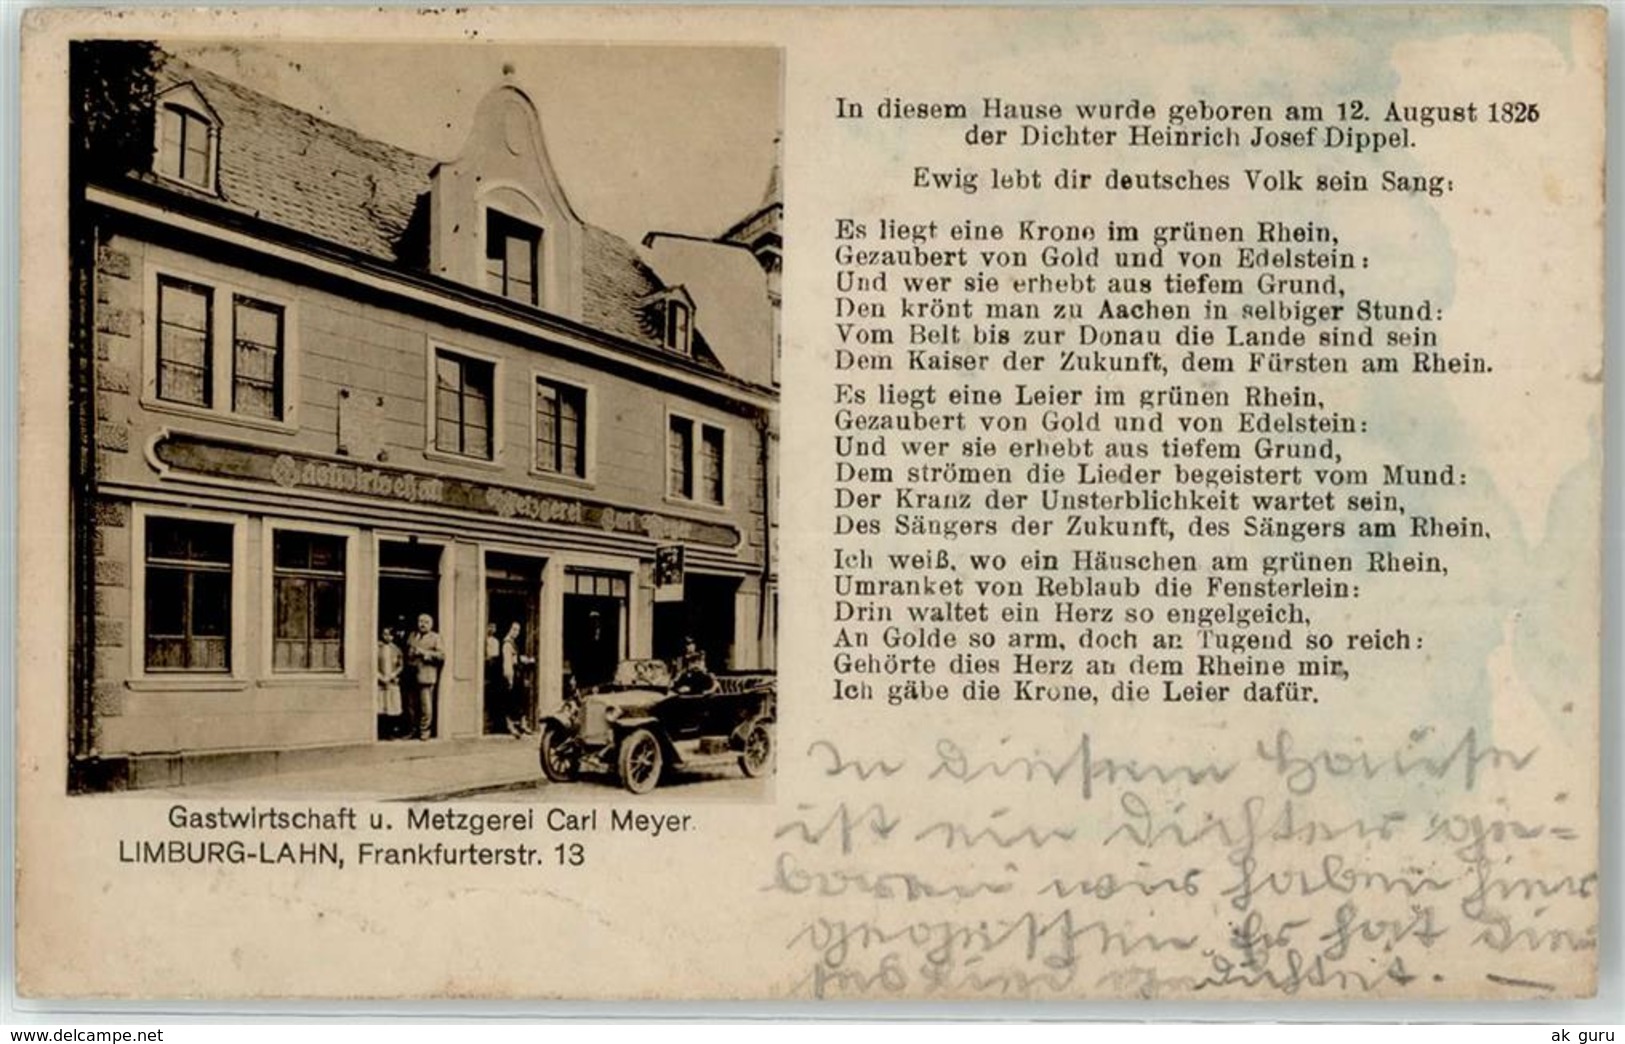 In diesem Hause wurde geboren am 12. August 1826
der Dichter Heinrich Josef Dippel.
Ewig lebt dir deutsches Volk sein Sang:
Es liegt eine Krone im grünen Rhein,
Gezaubert von Gold und von Edelstein:
Und wer sie erhebt aus tiefem Grund,
Den krönt man zu Aachen in selbiger Stund:
Vom Belt bis zur Donau die Lande sind sein
Dem Kaiser der Zukunft, dem Fürsten am Rhein.
Es liegt eine Leier im grünen Rhein,
Gezaubert von Gold und von Edelstein:
Und wer sie erhebt aus tiefem Grund,
Dem strömen die Lieder begeistert vom Mund:
Der Kranz der Unsterblichkeit wartet sein,
Des Sängers der Zukunft, des Sängers am Rhein.
Ich weiß, wo ein Häuschen am grünen Rhein,
Umranket von Reblaub die Fensterlein:
Drin waltet ein Herz so engelgeich,
An Golde so arm, doch an Tugend so reich:
Gehörte dies Herz an dem Rheine mir,
Ich gäbe die Krone, die Leier dafür.
Gastwirtschaft Metzgerei Carl Meyer
Gastwirtschaft u. Metzgerei Carl Meyer.
LIMBURG-LAHN, Frankfurterstr. 13
In diesem Hause
ist ein Dichter ge=
boren wir haben hier
gegessen. Er hat die
ses Lied gedichtet. —
www.delcampe.net
ak_guru